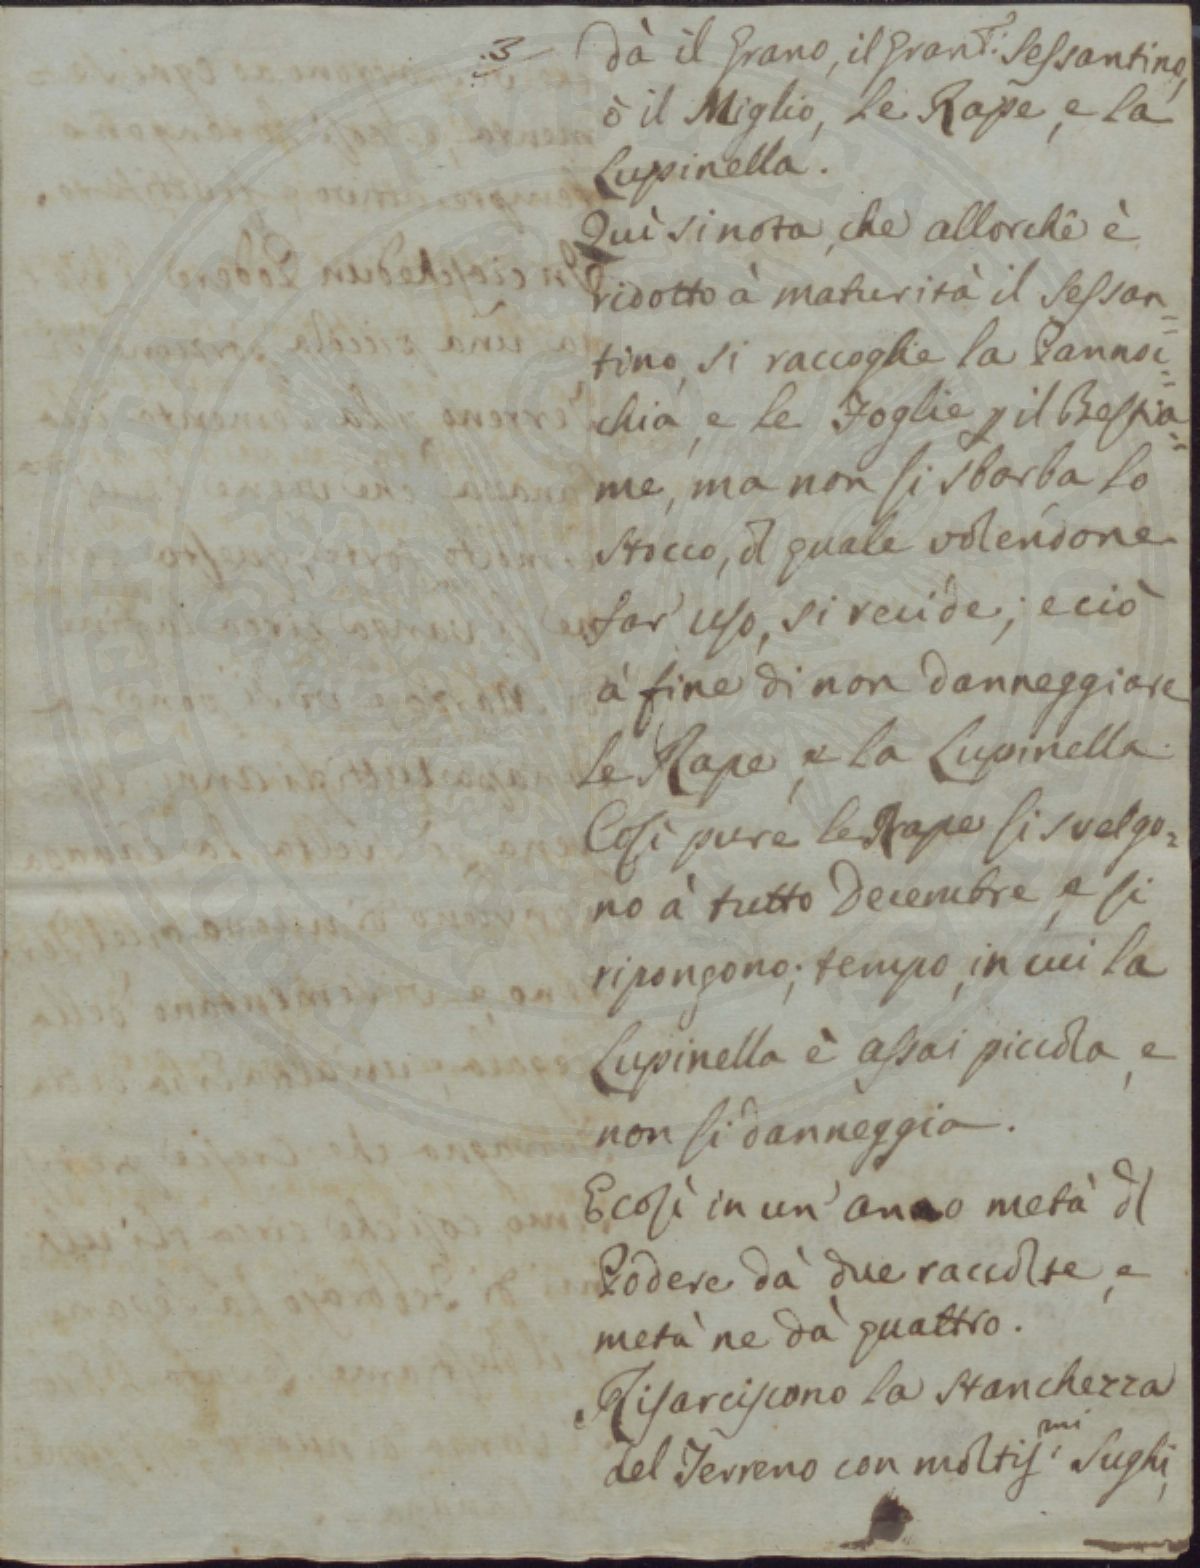 3
dà il Grano, il Gran T.º Sessantino,
ò il Miglio, le Rape, e la
Lupinella.
Quì si nota, che allorchè è
ridotto à maturità il Sessan=
tino, si raccoglie la Pannoc=
chia, e le Foglie p il Bestia=
me, ma non si sbarba lo
Stocco, il quale volendone
far' uso, si recide; e ciò
à fine di non danneggiare
le Rape, e la Lupinella.
Così pure le Rape si svelgo=
no à tutto Decembre, e si
ripongono; tempo, in cui la
Lupinella è assai piccola, e
non si danneggia.
E così in un' anno metà d
Podere dà due raccolte, e
metà ne dà quattro.
Risarciscono la Stanchezza
del Terreno con moltis.mi Sughi,